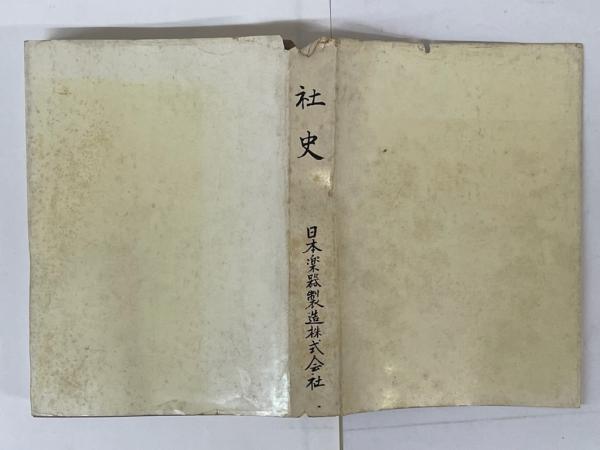 社史
日本楽器製造株式会社